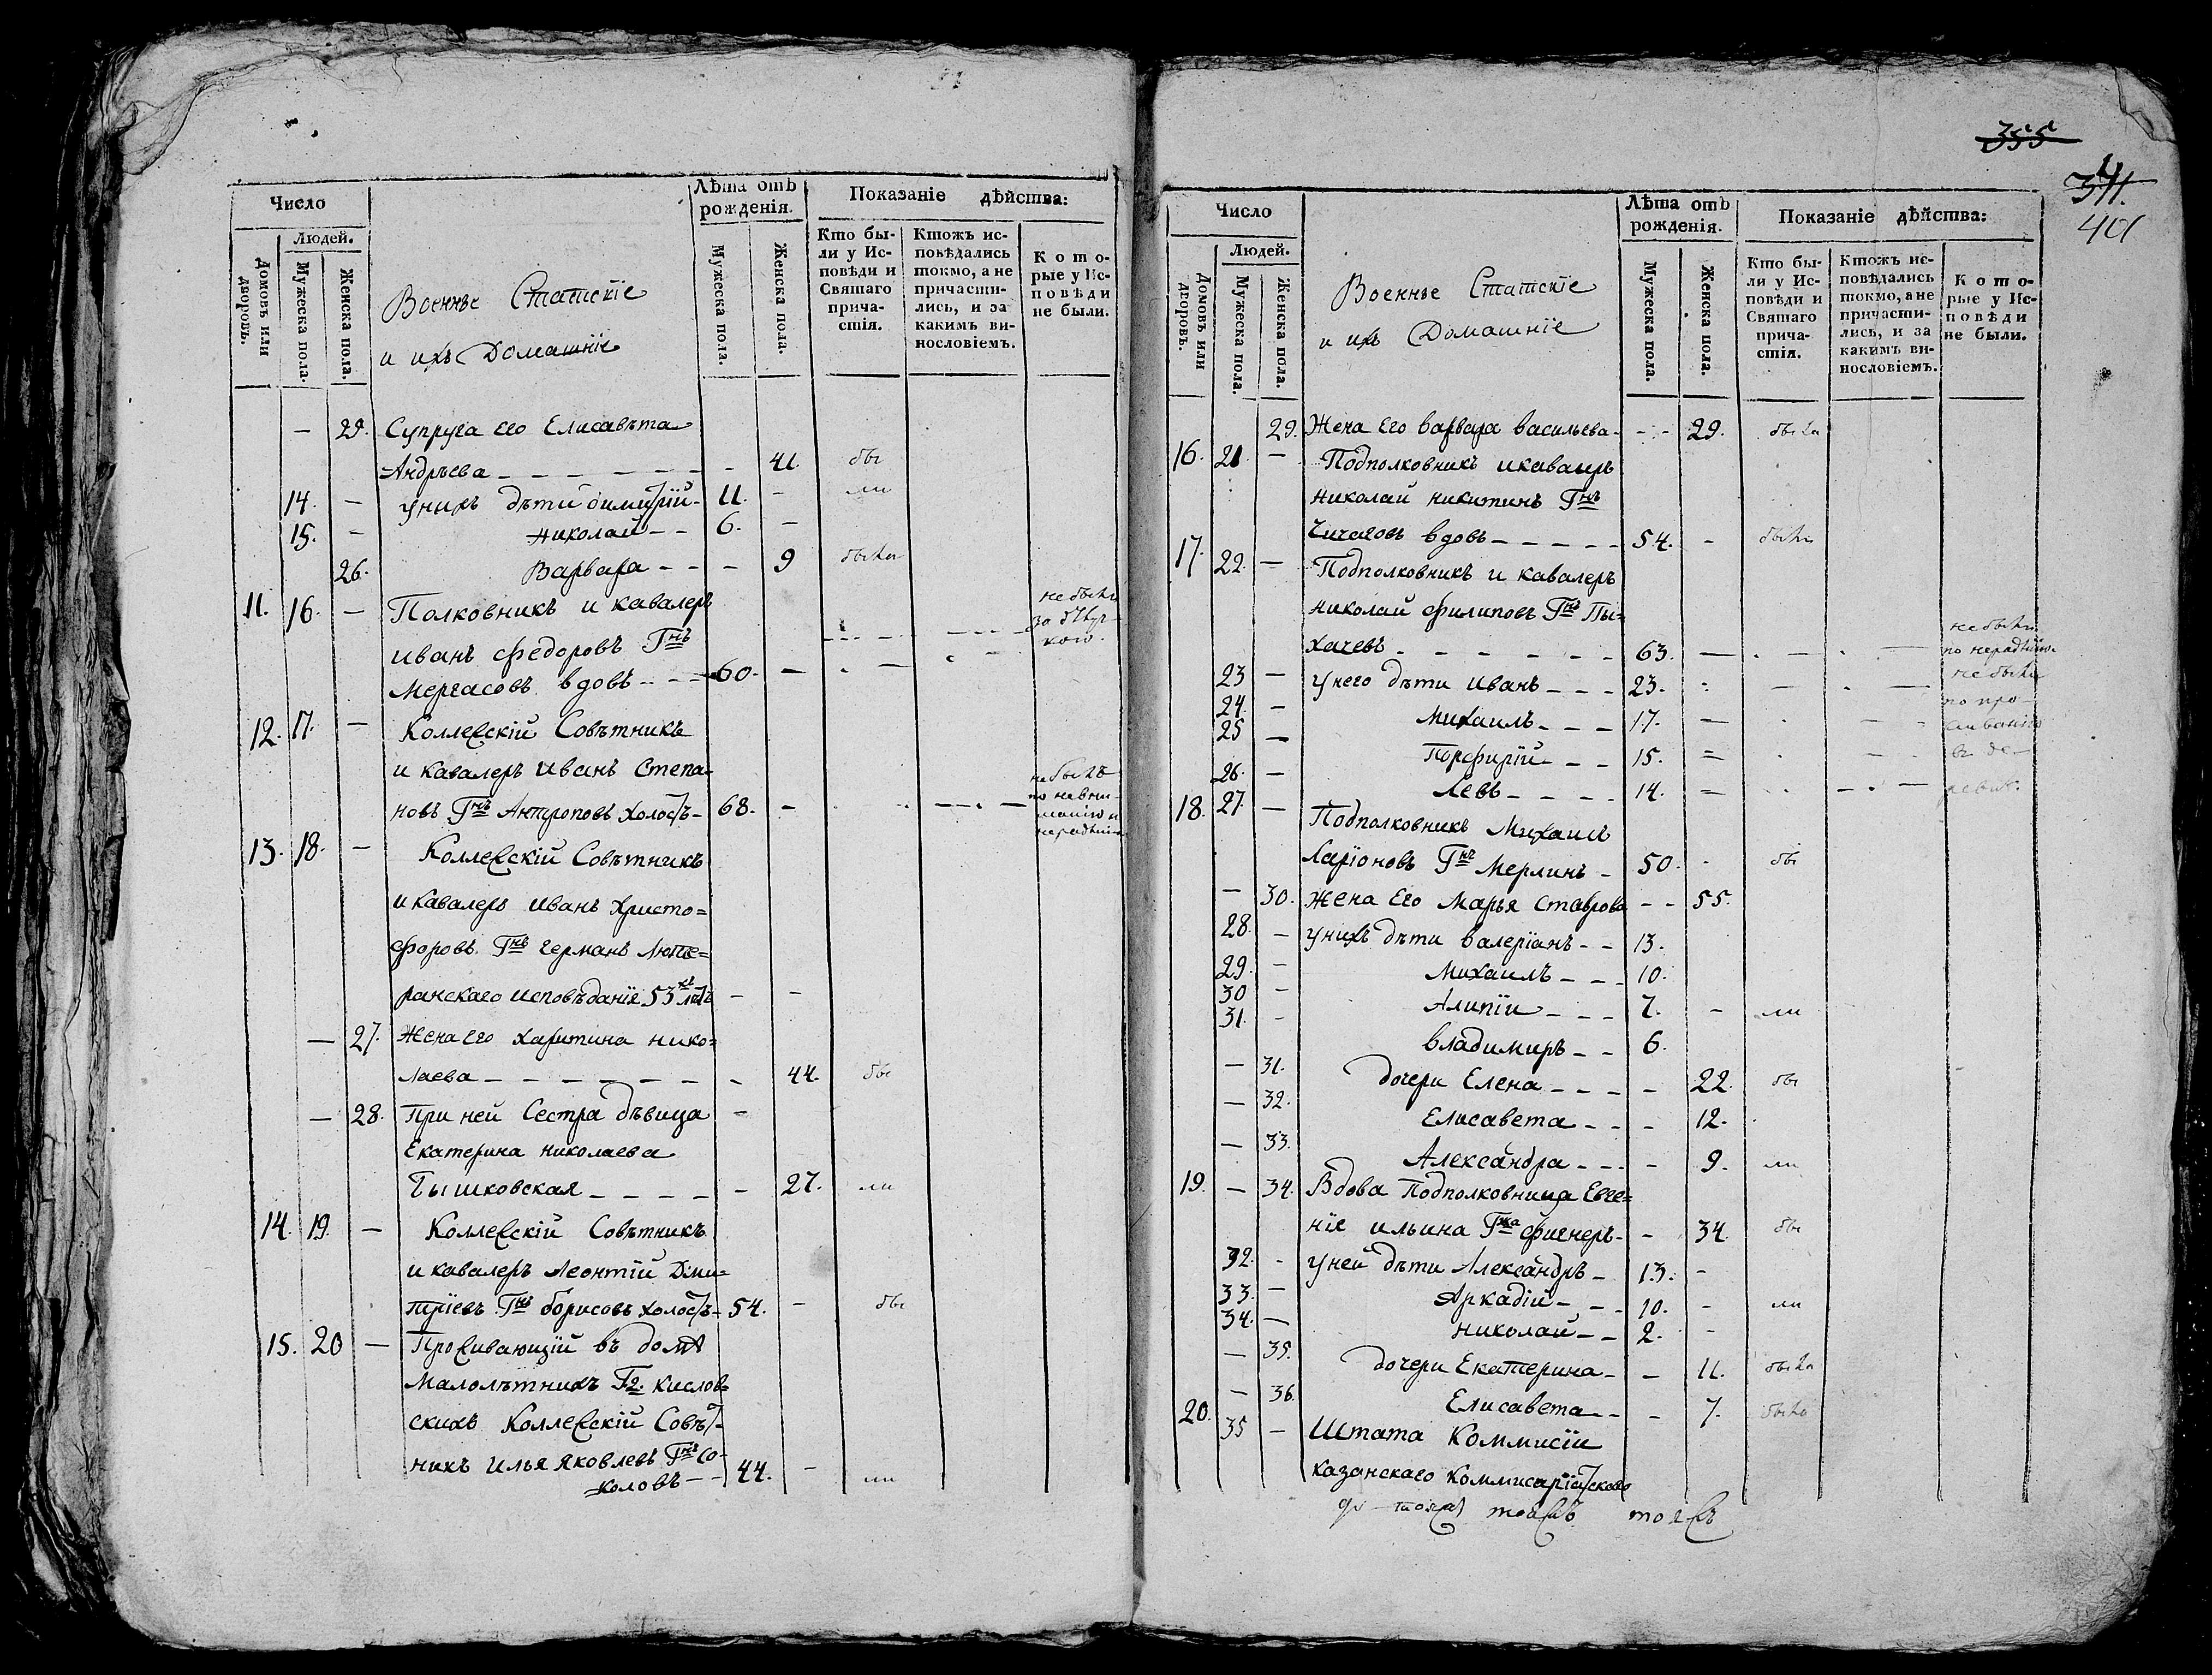 Число
Людей.
Домовъ или дворовъ.
Мужеска пола.
Женска пола.
Военные Статскіе
и ихъ Домашніе
Лѣта отъ рожденія.
Мужеска пола.
Женска пола.
Показаніе дѣйства:
Кто бы-
ли у Ис-
повѣди и
Святаго
прича-
стія.
Ктожъ ис-
повѣдались
токмо, а не
причасти-
лись, и за
какимъ ви-
нословіемъ.
Кото-
рые у Ис-
повѣди
не были.
— 29. Супруга его Елисавѣта
Андрѣева — — — — — — — 41. бы
14. — у нихъ дѣти Димитрій — 11. — ли
15. — Николай — — 6. —
26. Варвара — — — 9 была
11. 16. — Полковникъ и кавалеръ не былъ
Иванъ Федоровъ Г-нъ за
Мергасовъ вдовъ — — — 60. —
12. 17. — Коллежскій Совѣтникъ
и кавалеръ Иванъ Степа= не былъ
новъ Г-нъ Антроповъ холостъ — 68. — по невни-
манію и
нерадѣнію
13. 18. — Коллежскій Совѣтникъ
и кавалеръ Иванъ Христо=
форовъ Г-нъ Германъ Люте=
ранскаго исповѣданія 53хъ лѣтъ — —
— 27. Жена его Харитина Нико=
лаева — — — — — — — 44. бы
— 28. При ней Сестра дѣвица —
Екатерина Николаева
Тышковская — — — — — 27. ли
14. 19. — Коллежскій Совѣтникъ
и кавалеръ Леонтій Дми=
тріевъ Г-нъ Борисовъ холостъ — 54. — бы
15. 20 — Проживающій въ домѣ
Малолѣтнихъ Г.г. Кислов=
скихъ Коллежскій Совѣт-
никъ Илья Яковлевъ Г-нъ Со-
коловъ — — 44. — ли
355
401
Число
Людей.
Домовъ или дворовъ.
Мужеска пола.
Женска пола.
Военные Статскіе
и ихъ Домашніе
Лѣта отъ рожденія.
Мужеска пола.
Женска пола.
Показаніе дѣйства:
Кто бы-
ли у Ис-
повѣди и
Святаго
прича-
стія.
Ктожъ ис-
повѣдались
токмо, а не
причасти-
лись, и за
какимъ ви-
нословіемъ.
Кото-
рые у Ис-
повѣди
не были.
29. Жена его Варвара Васильева — — — 29. была
16. 21 — Подполковникъ и кавалеръ
Николай Никитинъ Г-нъ
Чичаговъ вдовъ — — — — — 54. — былъ
17. 22. — Подполковникъ и кавалеръ
Николай Филиповъ Г-нъ Пы=
хачевъ — — — — — — — 63. — не былъ по нерадѣнію
23 — у него дѣти Иванъ — — — 23. не были
24. — Михаилъ — — — 17. — по про-
25 — Порфирій — — 15. живанію
26. — Левъ — — — — 14. въ де-
ревнѣ.
18. 27. — Подполковникъ Михаилъ
Ларіоновъ Г-нъ Мерлинъ — 50. — бы
— 30. Жена его Марья Ставрова — — 55.
28. — у нихъ дѣти Валеріанъ — — 13.
29. — Михаилъ — — — 10.
30 — Алипіи — — — 7. — ли
31. — Владимиръ — — 6.
— 31. дочери Елена — — — — 22. бы
— 32. Елисавета — — — 12.
— 33. Александра — — — — 9. ли
19. — 34. Вдова Подполковница Евге=
нія Ильина Г-жа Фигнеръ — — 34. бы
32. — у ней дѣти Александръ — 13. —
33. — Аркадіи — — — 10. — ли
34. — Николай — — 2. —
— 35. дочери Екатерина — — 11. была
— 36. Елисавета — — — 7. была
20. 35 — Штата Коммисіи
Казанскаго Коммисаріатскаго